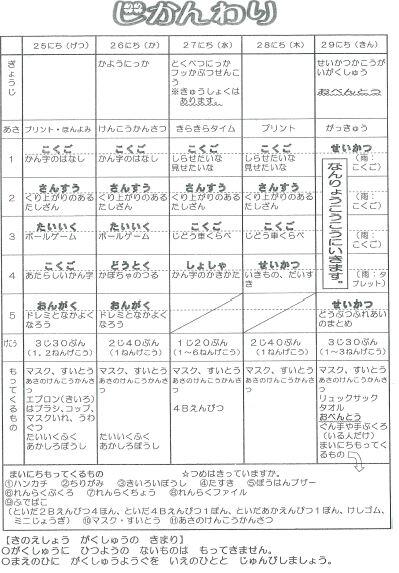 じかんわり
25にち（げつ） 26にち（か） 27にち（水） 28にち（木） 29にち（きん）
ぎょうじ
かようにっか
とくべつにっか
フッかぶつせんこう
※きゅうしょくはあります。
せいかつかこうがいがくしゅう
おべんとう
あさ プリント・ほんよみ けんこうかんさつ きらきらタイム プリント がっきゅう
1 こくご こくご こくご こくご せいかつ
かん字のはなし かん字のはなし しらせたいな見せたいな しらせたいな見せたいな （雨：こくご）
2 さんすう さんすう さんすう さんすう
くり上がりのあるたしざん くり上がりのあるたしざん くり上がりのあるたしざん くり上がりのあるたしざん （雨：こくご）
なんりょうこうこうにいきます。
3 たいいく たいいく こくご こくご
ボールゲーム ボールゲーム じどう車くらべ じどう車くらべ （雨：こくご）
4 こくご どうとく しょしゃ
あたらしいかん字 かぼちゃのつる かん字のかきかた いきもの、だいすき （雨：タブレット）
5 おんがく おんがく せいかつ
ドレミとなかよくなろう ドレミとなかよくなろう どうぶつふれあいのまとめ
げこう 3じ30ぷん 2じ40ぷん 1じ20ぷん 2じ40ぷん 3じ30ぷん
（1，2ねんげこう） （1ねんげこう） （1～6ねんげこう） （1ねんげこう） （1～3ねんげこう）
もってくるもの
マスク、すいとう
あさのけんこうかんさつ
エプロン（きいろ）
はブラシ、コップ、マスクいれ、うわぐつ
たいいくふく
あかしろぼうし
マスク、すいとう
あさのけんこうかんさつ
たいいくふく
あかしろぼうし
マスク、すいとう
あさのけんこうかんさつ
4Bえんぴつ
マスク、すいとう
あさのけんこうかんさつ
マスク、すいとう
あさのけんこうかんさつ
リュックサック
タオル
おべんとう
ぐん手や手ぶくろ（いる人だけ）
まいにちもってくるもの
まいにちもってくるもの ☆つめはきっていますか。
①ハンカチ ②ちりがみ ③きいろいぼうし ④たすき ⑤ぼうはんブザー
⑥れんらくぶくろ ⑦れんらくちょう ⑧れんらくファイル
⑨ふでばこ
（といだ2Bえんぴつ4ほん、といだ4Bえんぴつ1ぽん、といだあかえんぴつ1ぽん、けしゴム、
ミニじょうぎ） ⑩マスク・すいとう ⑪あさのけんこうかんさつ
【きのえしょう がくしゅうの きまり】
○がくしゅうに ひつようの ないものは もってきません。
○まえのひに がくしゅうようぐを いえのひとと じゅんびしましょう。